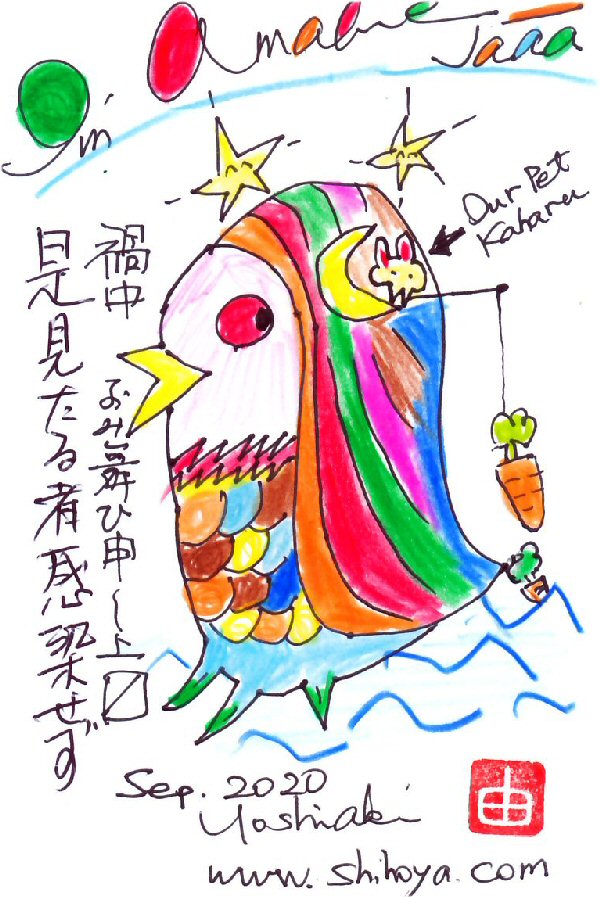 I'm Amabie
Jaaa
Our Pet
Kaharu
禍中
お み舞ひ申し上〼
是見たる者感染せず
Sep. 2020
Yoshiaki
www.shihoya.com
由